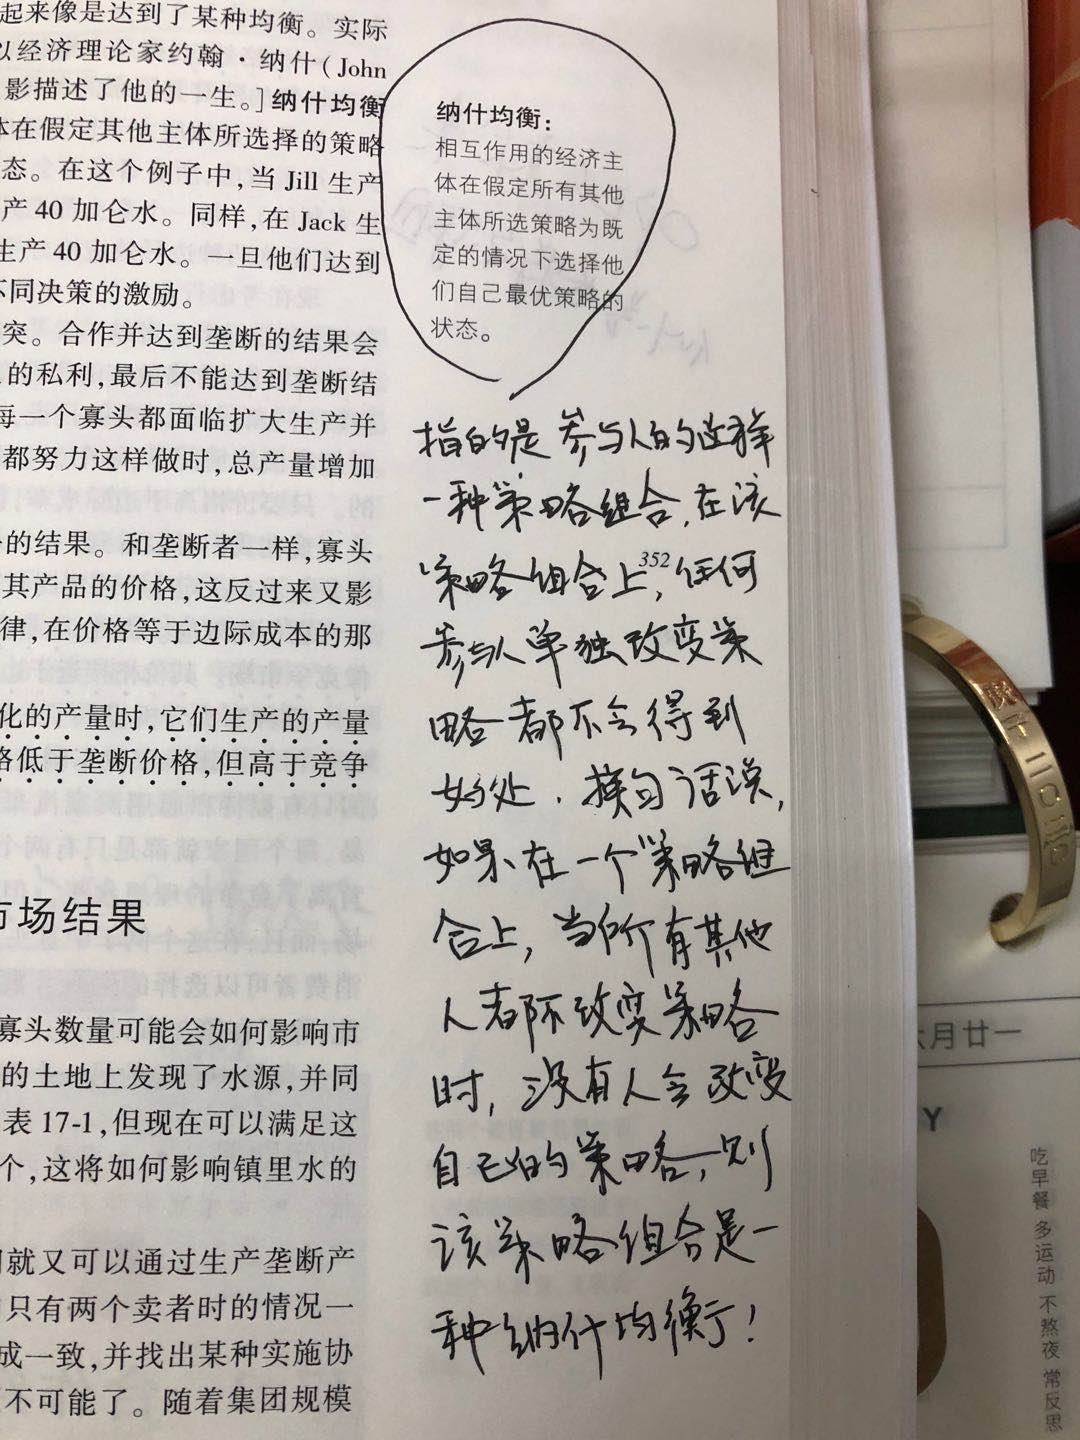 起来像是达到了某种均衡。实际
以经济理论家约翰·纳什(John
影描述了他的一生。]纳什均衡
体在假定其他主体所选择的策略
态。在这个例子中,当 Jill 生产
产 40 加仑水。同样,在 Jack 生
生产 40 加仑水。一旦他们达到
不同决策的激励。
突。合作并达到垄断的结果会
的私利,最后不能达到垄断结
每一个寡头都面临扩大生产并
都努力这样做时,总产量增加
的结果。和垄断者一样,寡头
其产品的价格,这反过来又影
律,在价格等于边际成本的那
化的产量时,它们生产的产量
格低于垄断价格,但高于竞争
市场结果
寡头数量可能会如何影响市
的土地上发现了水源,并同
表 17-1,但现在可以满足这
个,这将如何影响镇里水的
就又可以通过生产垄断产
只有两个卖者时的情况一
成一致,并找出某种实施协
不可能了。随着集团规模
纳什均衡:
相互作用的经济主
体在假定所有其他
主体所选策略为既
定的情况下选择他
们自己最优策略的
状态。
指的是参与人的这样
一种策略组合,在该
352
策略组合上,任何
参与人单独改变策
略都不会得到
好处.换句话说,
如果在一个策略组
合上,当所有其他
人都不改变策略
时,没有人会改变
自己的策略,则
该策略组合是一
种纳什均衡!
六月廿一
Y
吃早餐 多运动 不熬夜 常反思